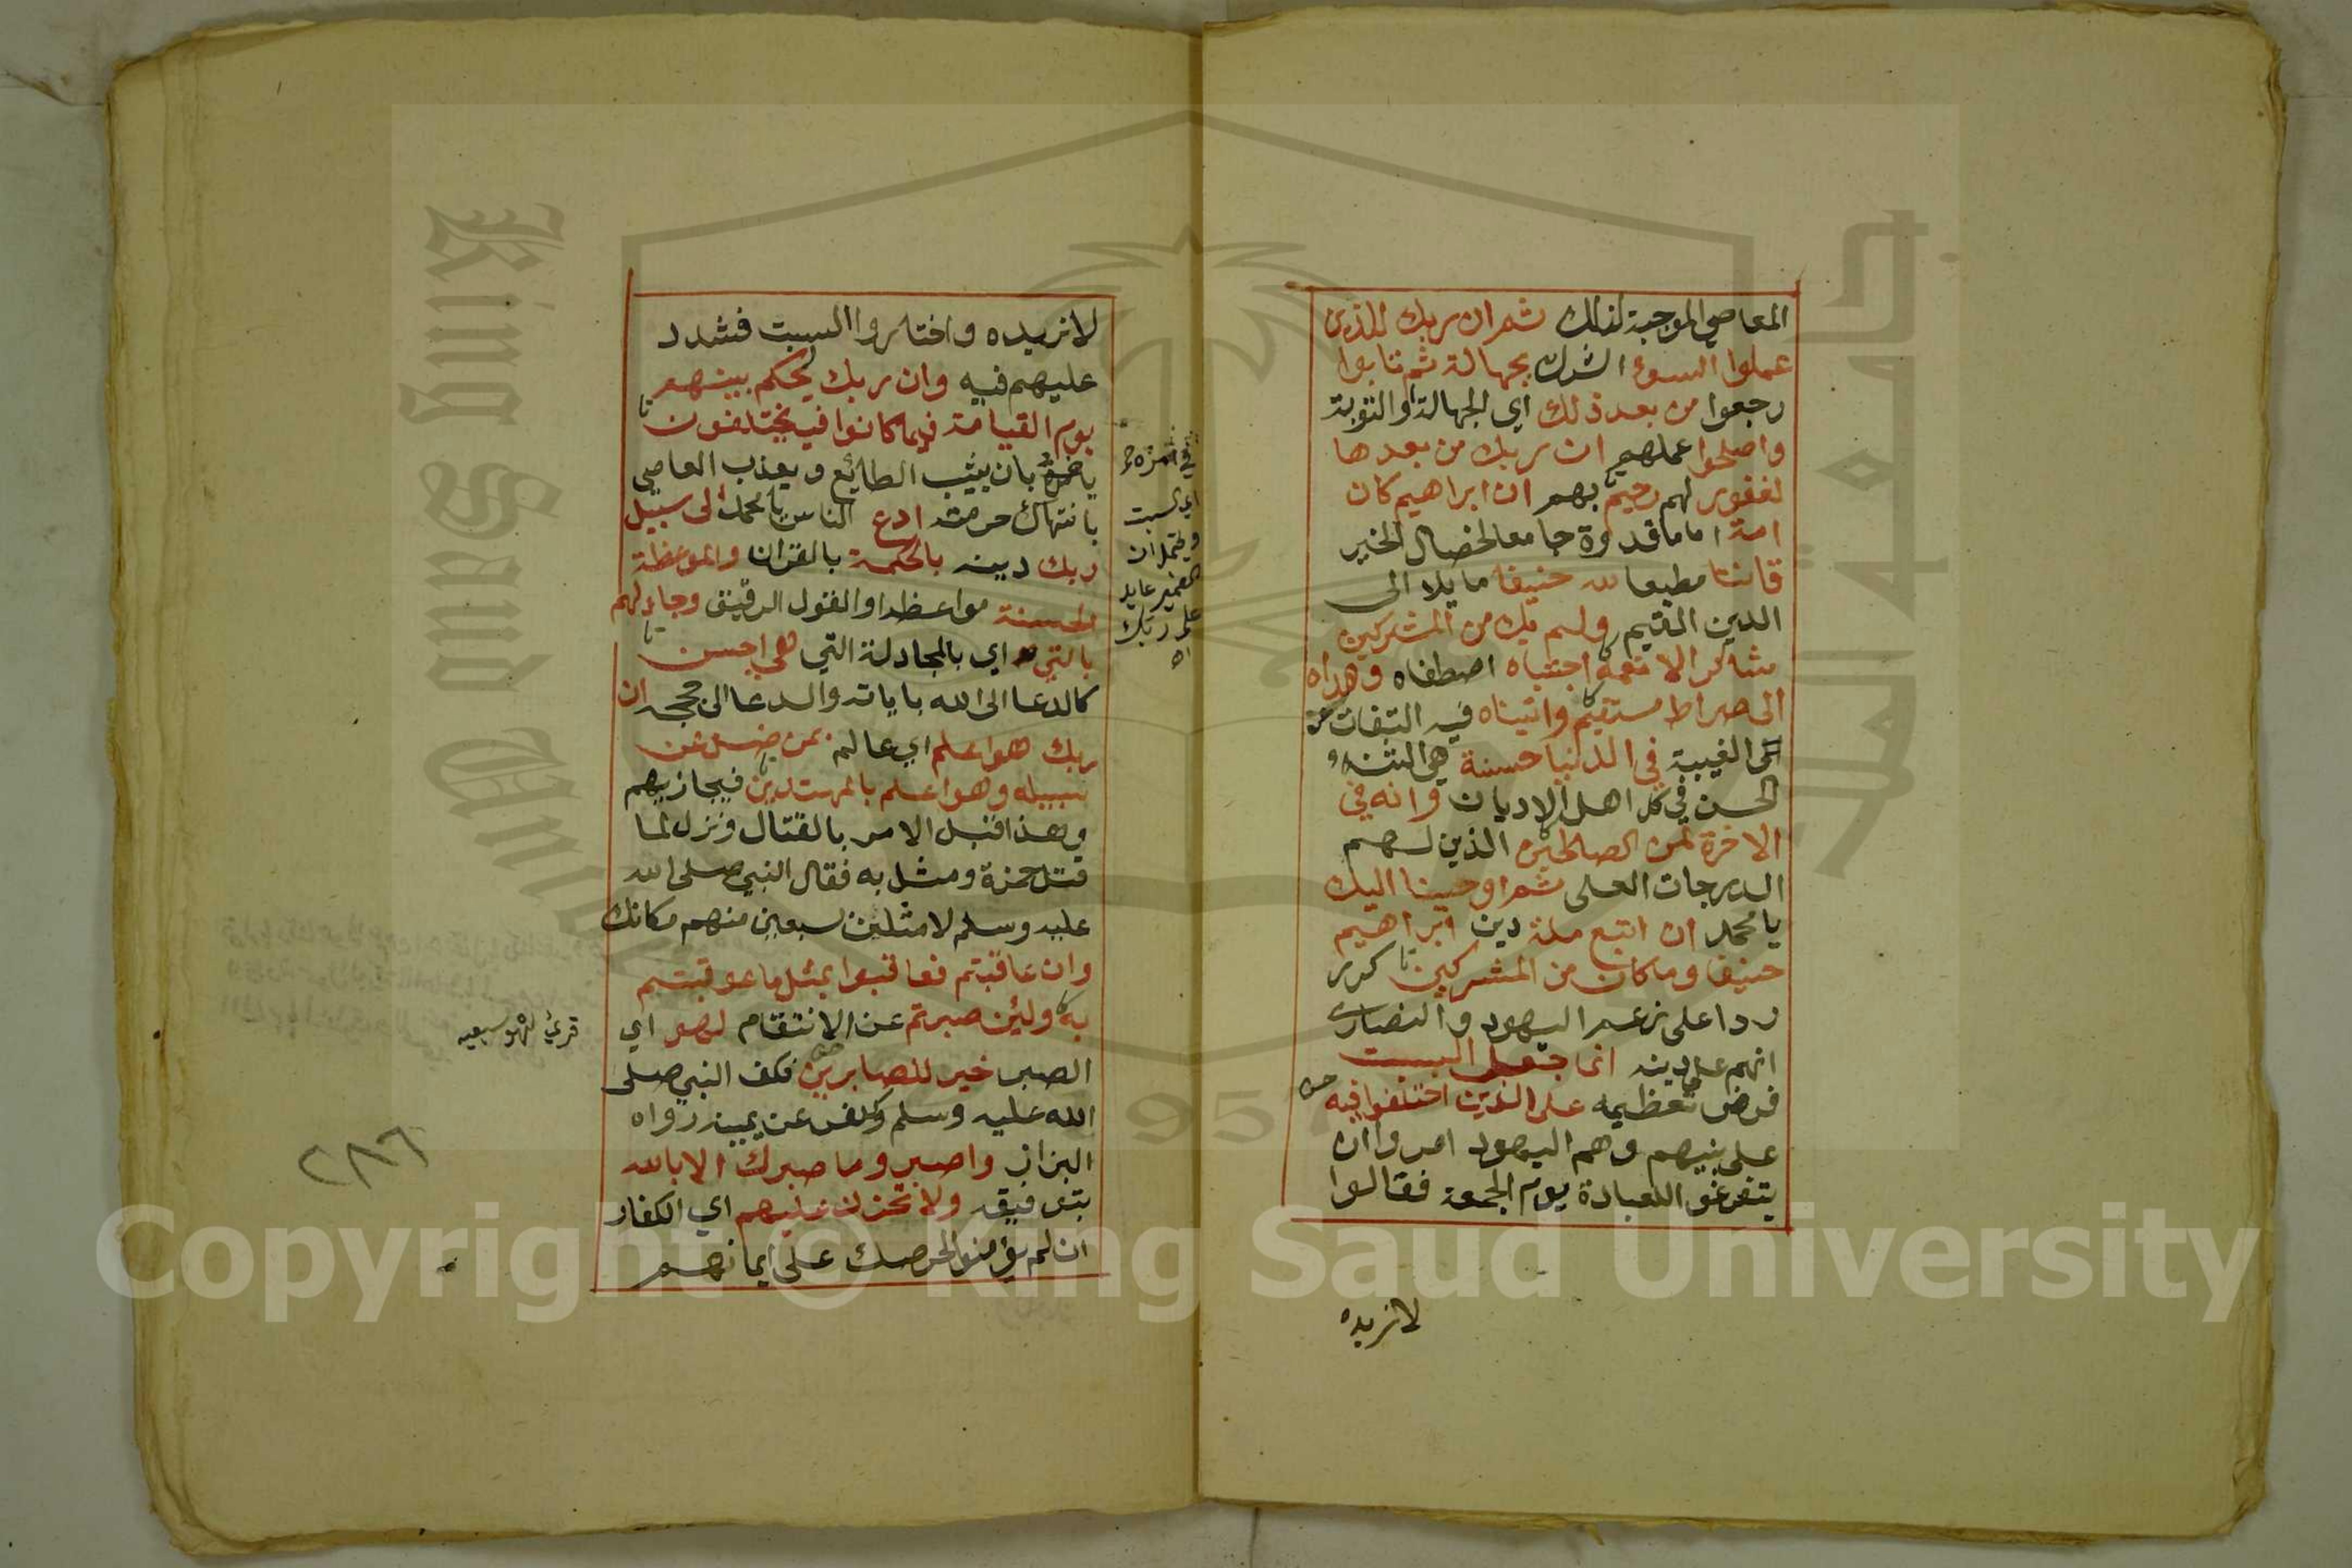 المعاصي الموجبة لذلك ثم ان ربك للذين
عملوا السوء الشرك بجهالة ثم تابوا
رجعوا من بعد ذلك اي الجهالة او التوبة
واصلحوا عملهم ان ربك من بعدها
لغفور لهم رحيم بهم ان ابراهيم كان
امة اماما قدوة جامعا لخصال الخير
قانتا مطيعا لله حنيفا مايلا الى
الدين القيم ولم يك من المشركين
شاكرا لا نعمه اجتباه اصطفاه وهداه
الى صراط مستقيم واتيناه فيه التفات عن
الغيبة في الدنيا حسنة هي الثناء
الحسن في كل اهل الاديان وانه في
الاخرة لمن الصالحين الذين لهم
الدرجات العلى ثم اوحينا اليك
يا محمد ان اتبع ملة دين ابراهيم
حنيفا وما كان من المشركين كرر
ردا على زعم اليهود والنصارى
انهم على دينه انما جعل السبت
فرض تعظيمه على الذين اختلفوا فيه
على نبيهم وهم اليهود امروا ان
يتفرغوا للعبادة يوم الجمعة فقالوا
لا نريده
لا نريده واختاروا السبت فشدد
عليهم فيه وان ربك ليحكم بينهم
يوم القيامة فيما كانوا فيه يختلفون
بان يثيب الطائع ويعذب العاصي
بانتهاك حرمته ادع الناس يا محمد الى سبيل
ربك دينه بالحكمة بالقران والموعظة
الحسنة مواعظه او القول الرقيق وجادلهم
بالتي اي بالمجادلة التي هي احسن
كالدعا الى الله باياته والدعا الى حججه ان
ربك هو اعلم اي عالم بمن ضل عن
سبيله وهو اعلم بالمهتدين فيجازيهم
وهذا قبل الامر بالقتال ونزل لما
قتل حمزة ومثل به فقال النبي صلى الله
عليه وسلم لامثلن بسبعين منهم مكانك
وان عاقبتم فعاقبوا بمثل ما عوقبتم
به ولئن صبرتم عن الانتقام لهو اي
الصبر خير للصابرين فكف النبي صلى
الله عليه وسلم وكفر عن يمينه رواه
البزار واصبر وما صبرك الا بالله
بتوفيقه ولا تحزن عليهم اي الكفار
ان لم يؤمنوا لحرصك على ايمانهم
اي السبت
ويحتمل ان
الضمير عايد
على ربك
اه
٢٨٦
King Saud University
1957
Copyright © King Saud University